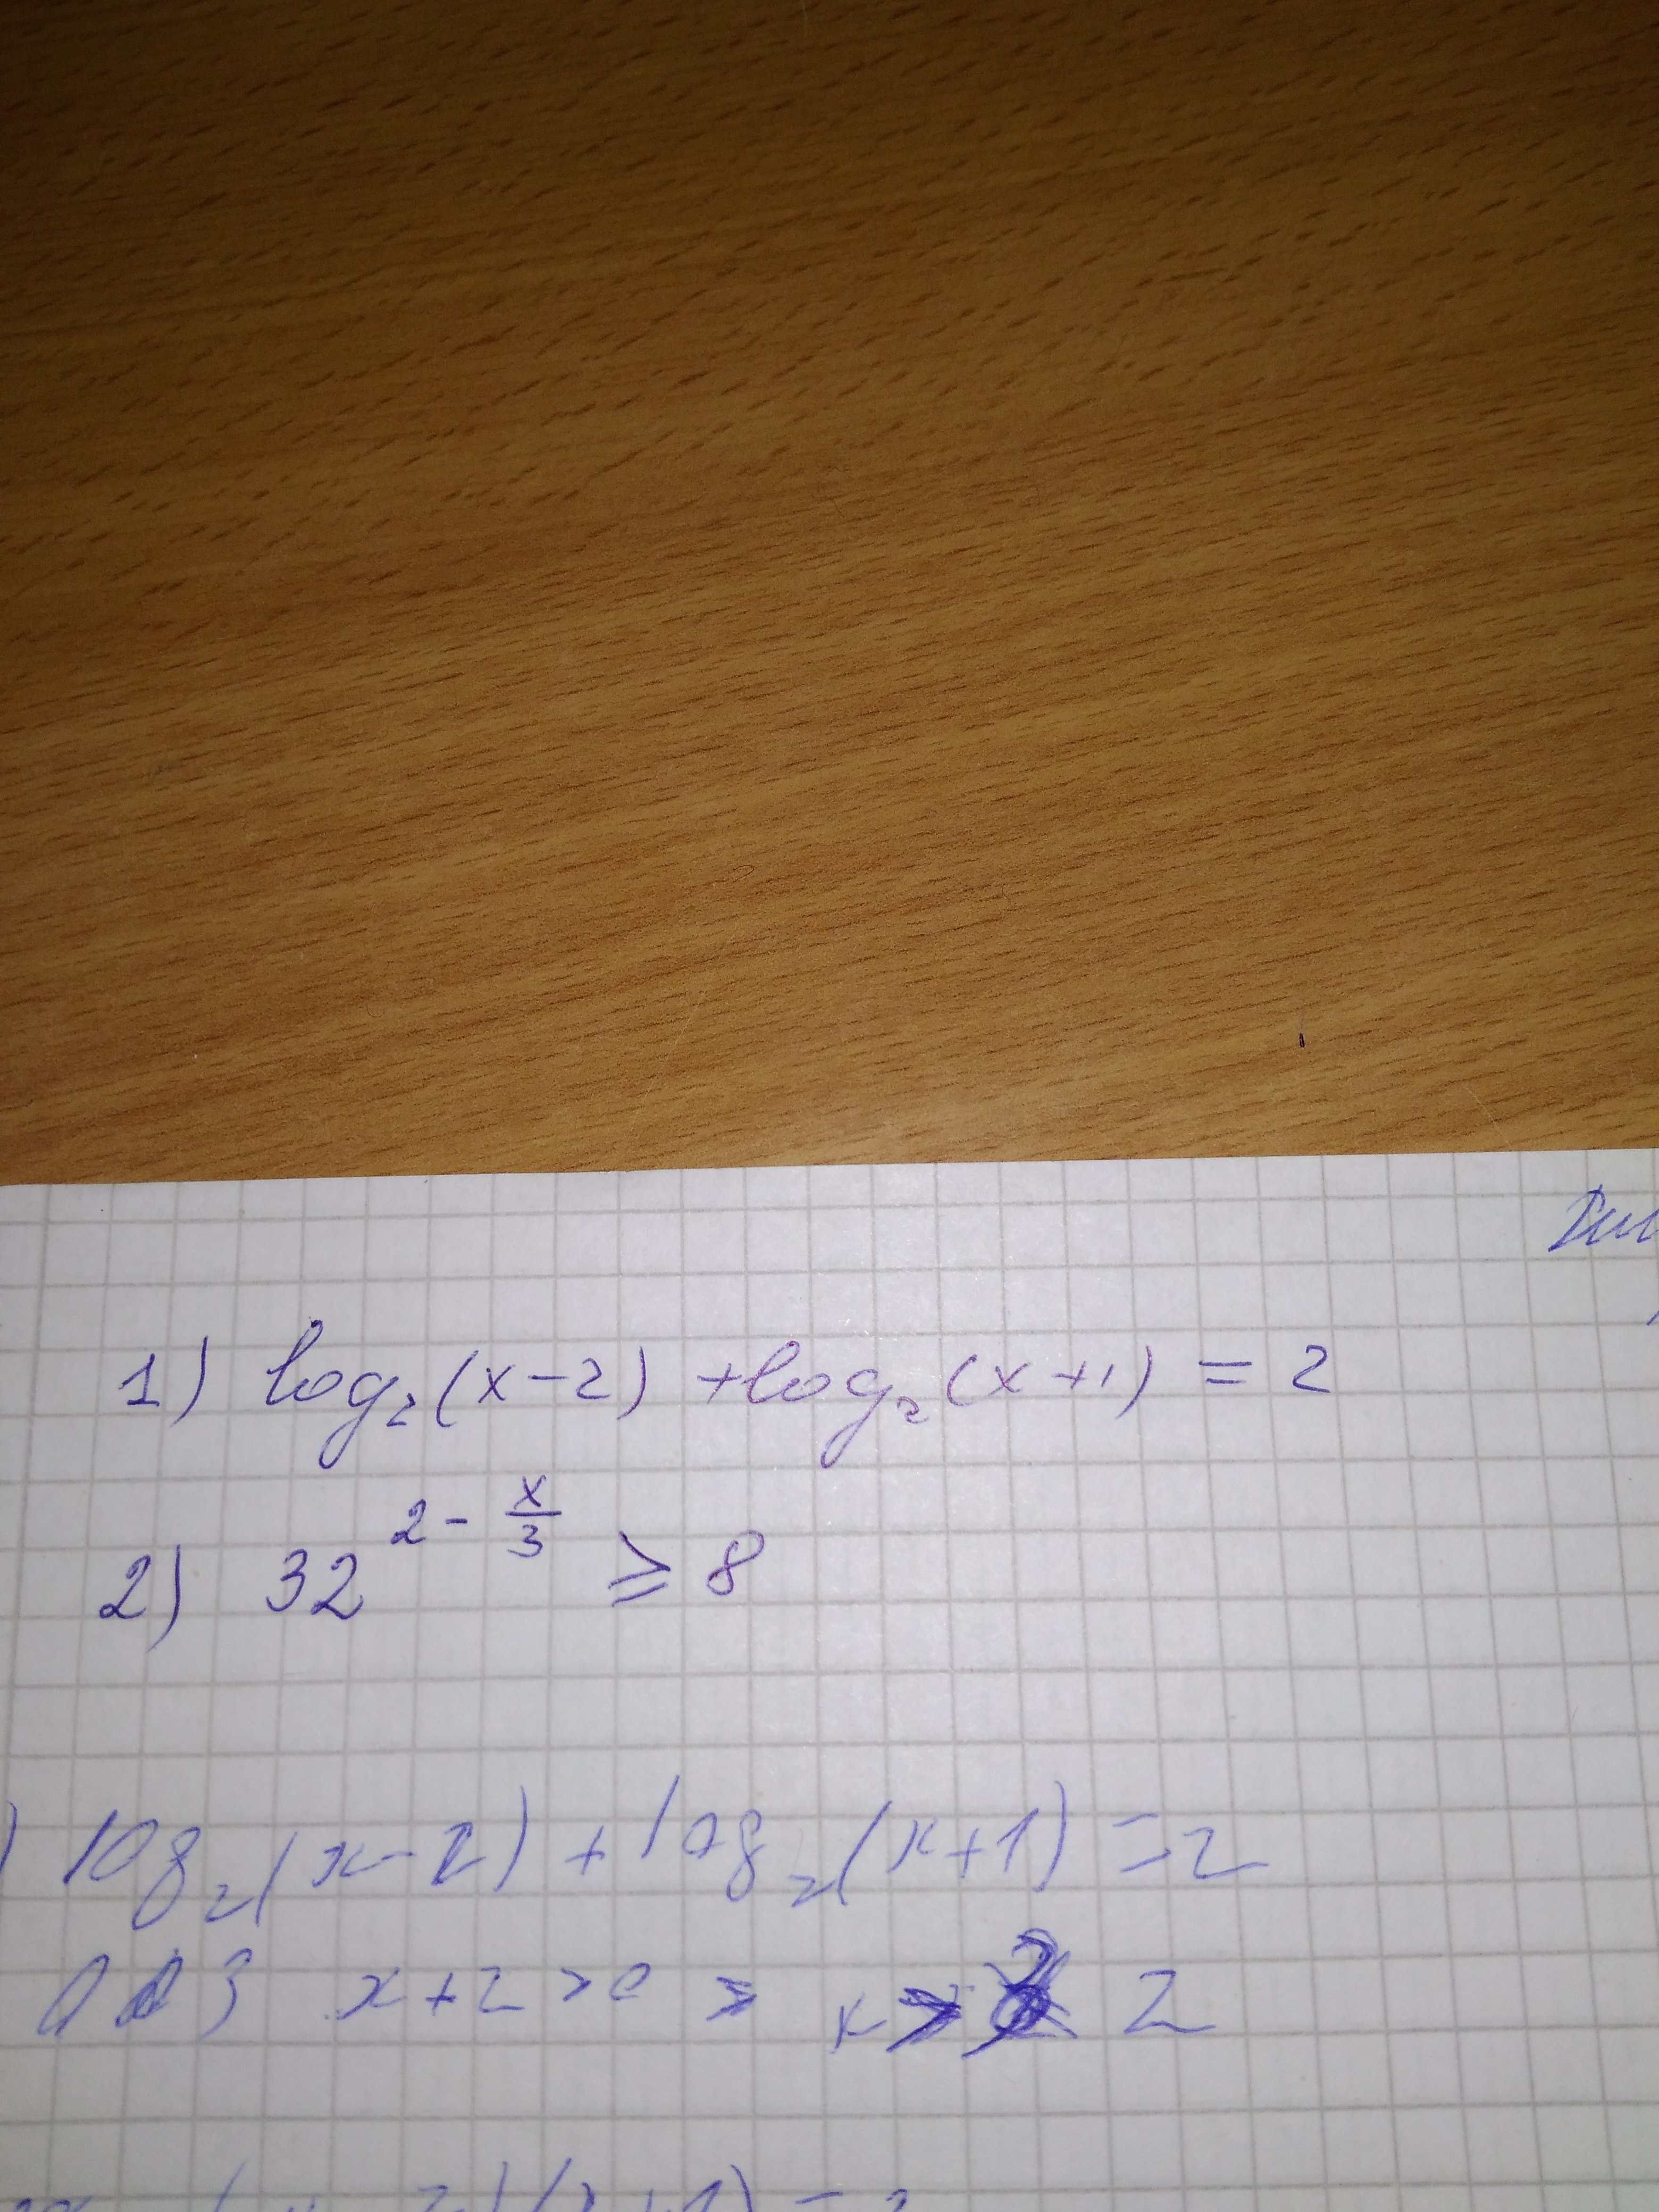 1) log₂(x-2) + log₂(x+1) = 2
2) 32^(2 - x/3) ⩾ 8
) log₂(x-2) + log₂(x+1) = 2
ОДЗ x+2 > 0 > x > 2